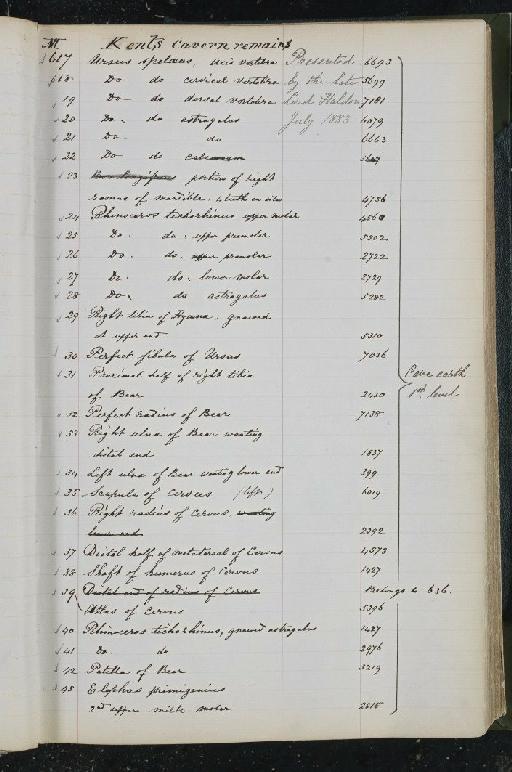 M. Kents cavern remains
617 Ursus spelæus, axis vertebra Presented 6693
618 Do do cervical vertebra by the late 5699
19 Do - do dorsal vertebra Lord Haldon 7181
20 Do - do astragalus July 1883 6079
21 Do - do 6663
22 Do do calcaneum
23 portion of right
ramus of mandible. teeth in situ 4756
24 Rhinoceros tichorhinus upper molar
25 Do. do. upper premolar 5302
26 Do. do. upper premolar 2722
27 Do. do. lower molar 2729
28 Do. do astragalus 5282
29 Right tibia of Hyæna. gnawed
at upper end 5310
30 Perfect fibula of Ursus 7026
31 Proximal half of right tibia
of Bear 2410
32 Perfect radius of Bear 7138
33 Right ulna of Bear wanting
distal end 1837
34 Left ulna of Bear wanting lower end 399
35 Scapula of Cervus (left) 6019
36 Right radius of Cervus wanting
lower end 2392
37 Distal half of metatarsal of Cervus 4573
38 Shaft of humerus of Cervus 1427
39 Distal end of radius of Cervus Belongs to 636.
Atlas of Cervus 5396
40 Rhinoceros tichorhinus, gnawed astragalus 1427
41 Do. do 2976
42 Patella of Bear 3219
43 Elephas primigenius
2nd upper milk molar 2615
Cave earth
1st level